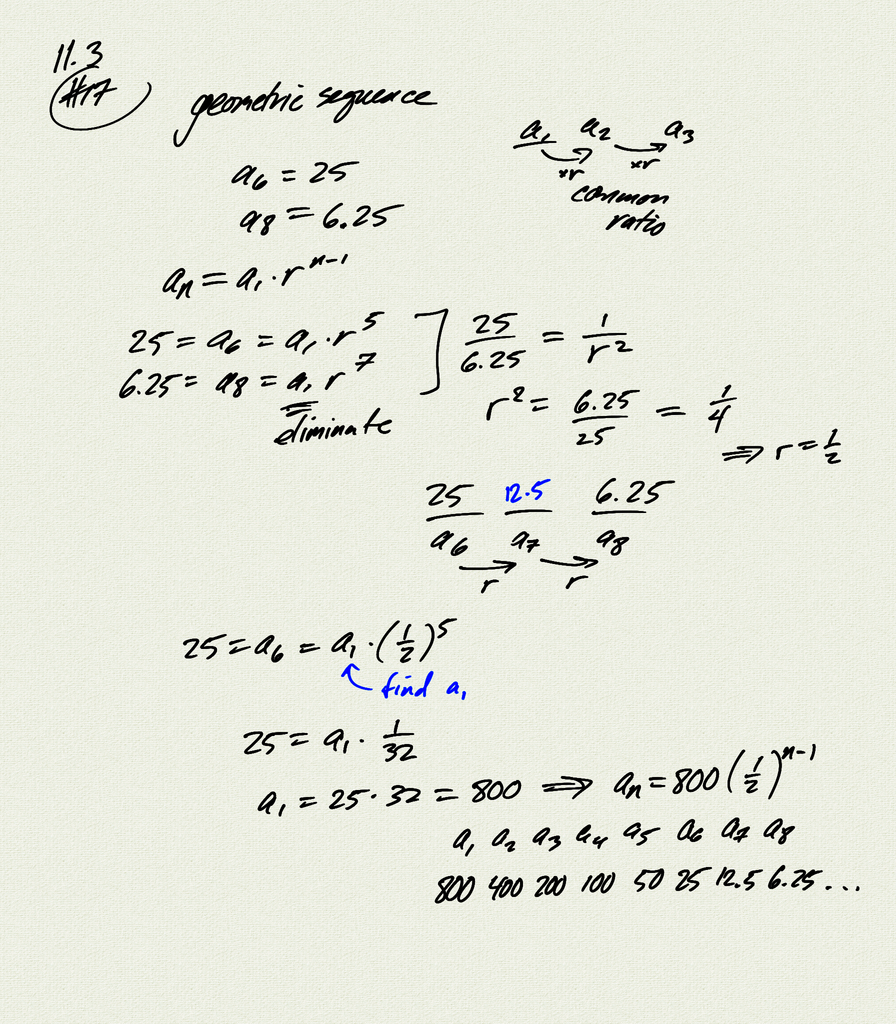 11.3
#17
geometric sequence
a₁ a₂ a₃
×r ×r
common
ratio
a₆ = 25
a₈ = 6.25
aₙ = a₁ · rⁿ⁻¹
25 = a₆ = a₁ · r⁵
6.25 = a₈ = a₁ r⁷
eliminate
25/6.25 = 1/r²
r² = 6.25/25 = 1/4
⇒ r = 1/2
25 12.5 6.25
a₆ a₇ a₈
r r
25 = a₆ = a₁ · (1/2)⁵
find a₁
25 = a₁ · 1/32
a₁ = 25 · 32 = 800 ⇒ aₙ = 800 (1/2)ⁿ⁻¹
a₁ a₂ a₃ a₄ a₅ a₆ a₇ a₈
800 400 200 100 50 25 12.5 6.25 ...